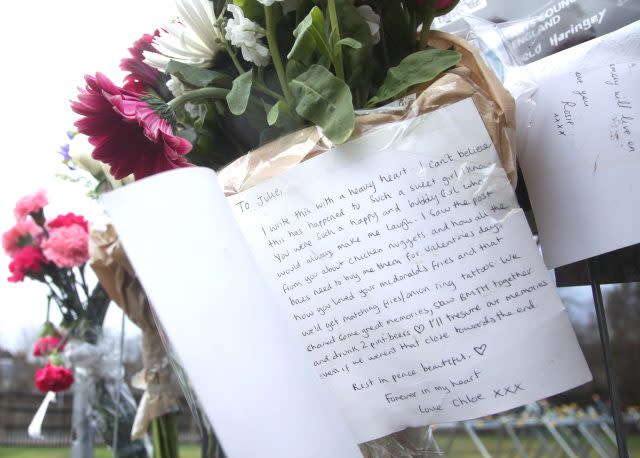 COUNCIL
ENGLAND
Haringey
away will live on
love you
Rosie
xxxx
To Julie,
I write this with a heavy heart. I can't believe
this has happened to such a sweet girl know
You were such a happy and bubbly girl who
would always make me laugh. I saw the post
from you about chicken nuggets and how all the
baes need to buy me them for valentines day.
how you loved your mcdonalds fries and that
we'd get matching fries/onion ring tattoos. We
shared some great memories, saw BMTH together
and drunk 2 pint beers ♡ I'll tresure our memories
even if we werent that close towards the end.
Rest in peace beautiful. ♡
Forever in my heart
Love Chloe xxx